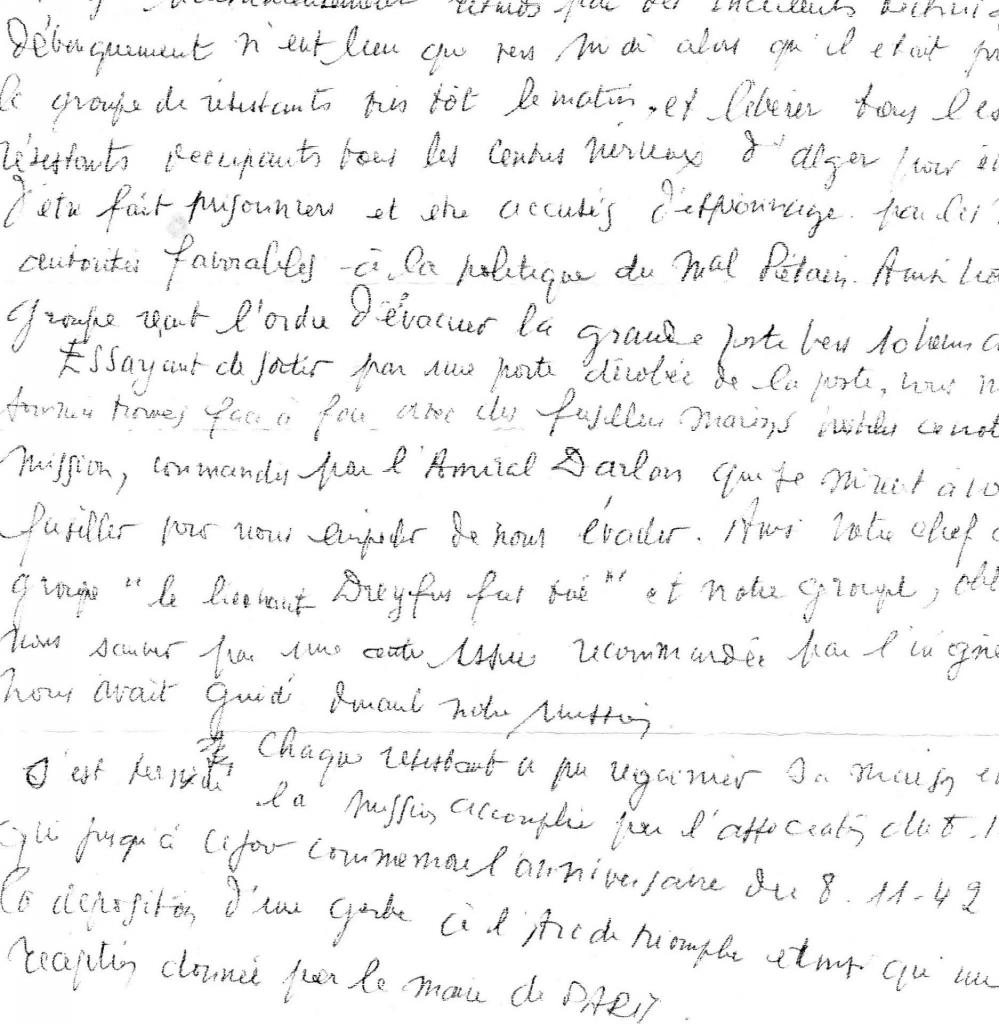 retardés par des incidents
débarquement n'eut lieu que vers midi alors qu'il etait
le groupe de résistants très tôt le matin, et libérer tous les
résistants occupants tous les centres nerveux d'alger pour
d'être fait prisonniers et etre accusés d'espionnage. par les
autorités favorables à la politique du Mal Pétain. Ainsi
groupe reçut l'ordre d'évacuer la grande poste vers 10 heures
ESSayant de sortir par une porte dérobée de la poste, nous
trouvés face à face avec des fusillers marins hostiles a notre
mission, commandés par l'Amiral Darlan qui se mirent à
fusiller pour nous empecher de nous évader. Ainsi notre chef
groupe " le lieutenant Dreyfus fut tué " et notre groupe,
nous sauver par une issue recommandée par l'
nous avait guidé durant notre mission
s'est terminée Chaque résistant a pu regagner sa maison
la mission accomplie par l'association
qui jusqu'à ce jour commemore l'anniversaire du 8.11-42
la deposition d'une gerbe à l'Arc de triomphe et ainsi qu'une
reception donnée par le maire de PARIS.